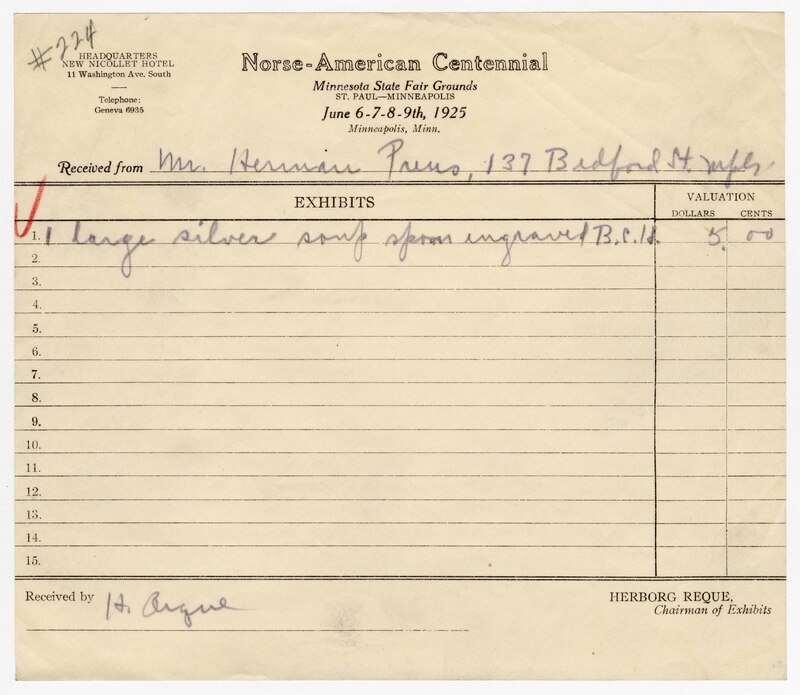 #224
HEADQUARTERS
NEW NICOLLET HOTEL
11 Washington Ave. South
Telephone:
Geneva 6935
Norse-American Centennial
Minnesota State Fair Grounds
ST. PAUL—MINNEAPOLIS
June 6-7-8-9th, 1925
Minneapolis, Minn.
Received from Mr. Herman Preus, 137 Bedford St. Mpls.
EXHIBITS
VALUATION
DOLLARS CENTS
1. 1 large silver soup spoon engraved B.C.H. 5. 00
2.
3.
4.
5.
6.
7.
8.
9.
10.
11.
12.
13.
14.
15.
Received by H. Reque
HERBORG REQUE,
Chairman of Exhibits